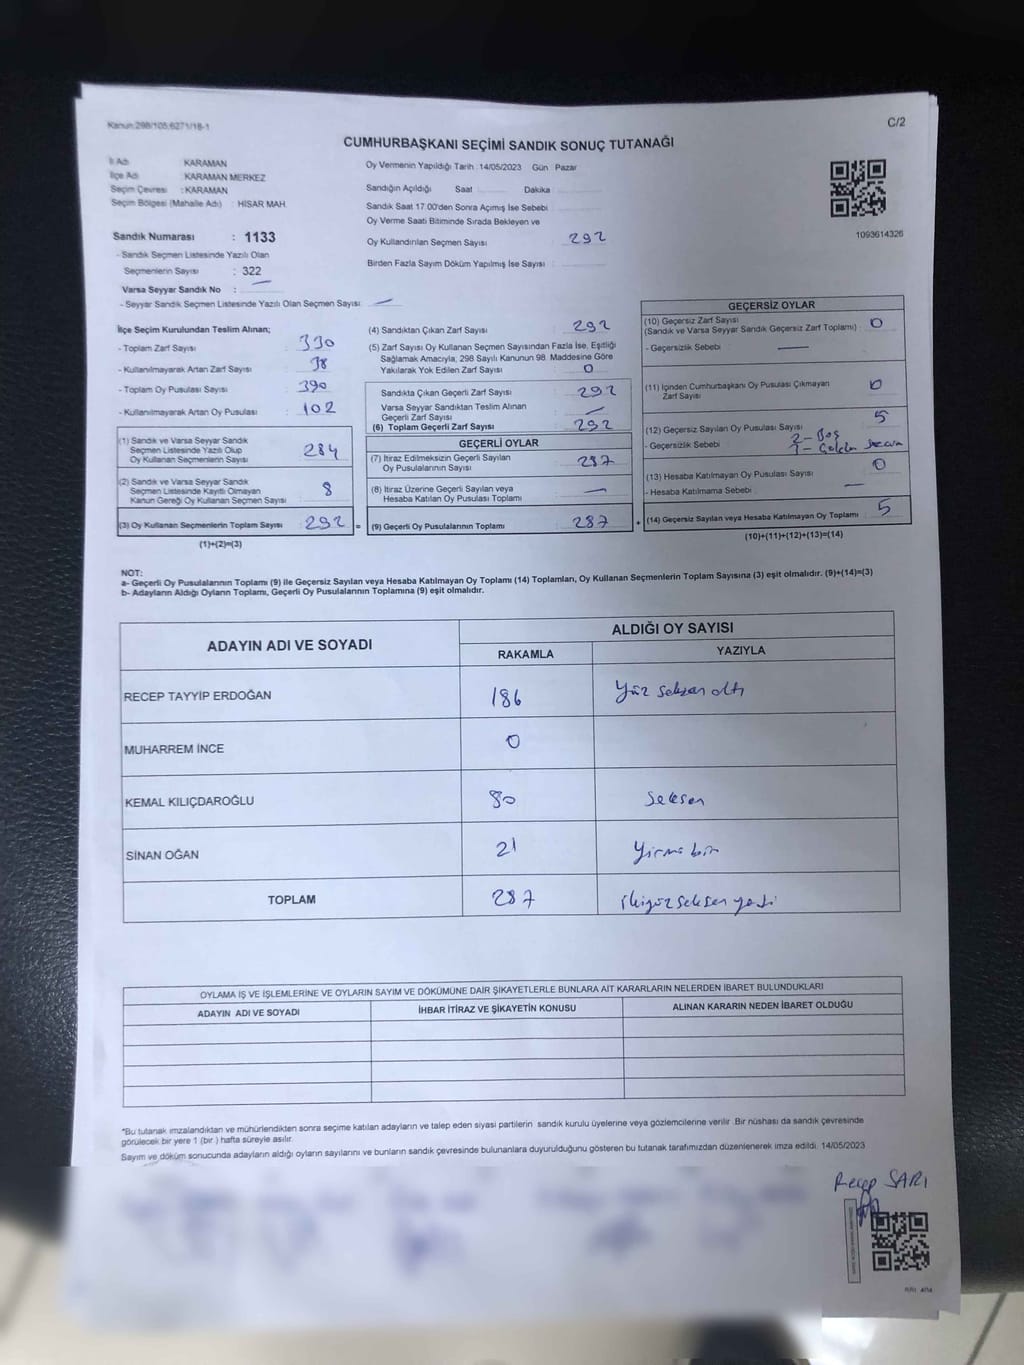 Kanun:298/105;6271/18-1
C/2
CUMHURBAŞKANI SEÇİMİ SANDIK SONUÇ TUTANAĞI
İl Adı KARAMAN
İlçe Adı KARAMAN MERKEZ
Seçim Çevresi : KARAMAN
Seçim Bölgesi (Mahalle Adı) : HİSAR MAH.
Sandık Numarası : 1133
- Sandık Seçmen Listesinde Yazılı Olan
Seçmenlerin Sayısı : 322
Varsa Seyyar Sandık No : —
- Seyyar Sandık Seçmen Listesinde Yazılı Olan Seçmen Sayısı : —
Oy Vermenin Yapıldığı Tarih : 14/05/2023 Gün Pazar
Sandığın Açıldığı Saat Dakika
Sandık Saat 17:00'den Sonra Açımış İse Sebebi
Oy Verme Saati Bitiminde Sırada Bekleyen ve
Oy Kullandırılan Seçmen Sayısı 292
Birden Fazla Sayım Döküm Yapılmış İse Sayısı :
1093614326
İlçe Seçim Kurulundan Teslim Alınan;
- Toplam Zarf Sayısı : 330
- Kullanılmayarak Artan Zarf Sayısı : 38
- Toplam Oy Pusulası Sayısı : 390
- Kullanılmayarak Artan Oy Pusulası : 102
(1) Sandık ve Varsa Seyyar Sandık
Seçmen Listesinde Yazılı Olup
Oy Kullanan Seçmenlerin Sayısı : 284
(2) Sandık ve Varsa Seyyar Sandık
Seçmen Listesinde Kayıtlı Olmayan
Kanun Gereği Oy Kullanan Seçmen Sayısı : 8
(3) Oy Kullanan Seçmenlerin Toplam Sayısı : 292 =
(1)+(2)=(3)
(4) Sandıktan Çıkan Zarf Sayısı : 292
(5) Zarf Sayısı Oy Kullanan Seçmen Sayısından Fazla İse, Eşitliği
Sağlamak Amacıyla; 298 Sayılı Kanunun 98. Maddesine Göre
Yakılarak Yok Edilen Zarf Sayısı : 0
Sandıkta Çıkan Geçerli Zarf Sayısı : 292
Varsa Seyyar Sandıktan Teslim Alınan
Geçerli Zarf Sayısı : —
(6) Toplam Geçerli Zarf Sayısı : 292
GEÇERLİ OYLAR
(7) İtiraz Edilmeksizin Geçerli Sayılan
Oy Pusulalarının Sayısı : 287
(8) İtiraz Üzerine Geçerli Sayılan veya
Hesaba Katılan Oy Pusulası Toplamı : —
(9) Geçerli Oy Pusulalarının Toplamı : 287 +
GEÇERSİZ OYLAR
(10) Geçersiz Zarf Sayısı
(Sandık ve Varsa Seyyar Sandık Geçersiz Zarf Toplamı) : 0
- Geçersizlik Sebebi : —
(11) İçinden Cumhurbaşkanı Oy Pusulası Çıkmayan
Zarf Sayısı : 0
(12) Geçersiz Sayılan Oy Pusulası Sayısı : 5
- Geçersizlik Sebebi : 2 - Boş
(13) Hesaba Katılmayan Oy Pusulası Sayısı : 0
- Hesaba Katılmama Sebebi : —
(14) Geçersiz Sayılan veya Hesaba Katılmayan Oy Toplamı : 5
(10)+(11)+(12)+(13)=(14)
NOT:
a- Geçerli Oy Pusulalarının Toplamı (9) ile Geçersiz Sayılan veya Hesaba Katılmayan Oy Toplamı (14) Toplamları, Oy Kullanan Seçmenlerin Toplam Sayısına (3) eşit olmalıdır. (9)+(14)=(3)
b- Adayların Aldığı Oyların Toplamı, Geçerli Oy Pusulalarının Toplamına (9) eşit olmalıdır.
ADAYIN ADI VE SOYADI
ALDIĞI OY SAYISI
RAKAMLA YAZIYLA
RECEP TAYYİP ERDOĞAN 186 Yüz seksen altı
MUHARREM İNCE 0
KEMAL KILIÇDAROĞLU 80 Seksen
SİNAN OĞAN 21 Yirmi bir
TOPLAM 287 ikiyüz seksen yedi
OYLAMA İŞ VE İŞLEMLERİNE VE OYLARIN SAYIM VE DÖKÜMÜNE DAİR ŞİKAYETLERLE BUNLARA AİT KARARLARIN NELERDEN İBARET BULUNDUKLARI
ADAYIN ADI VE SOYADI İHBAR İTİRAZ VE ŞİKAYETİN KONUSU ALINAN KARARIN NEDEN İBARET OLDUĞU
*Bu tutanak imzalandıktan ve mühürlendikten sonra seçime katılan adayların ve talep eden siyasi partilerin sandık kurulu üyelerine veya gözlemcilerine verilir. Bir nüshası da sandık çevresinde
görülecek bir yere 1 (bir) hafta süreyle asılır.
Sayım ve döküm sonucunda adayların aldığı oyların sayılarını ve bunların sandık çevresinde bulunanlara duyurulduğunu gösteren bu tutanak tarafımızdan düzenlenerek imza edildi. 14/05/2023
Recep SARI